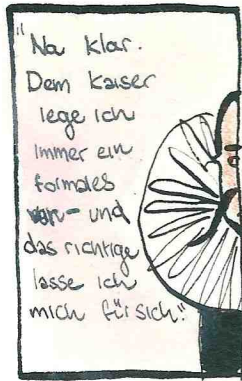 "Na klar.
Dem Kaiser
lege ich
immer ein
formales
vor - und
das richtige
lasse ich
mich für sich."